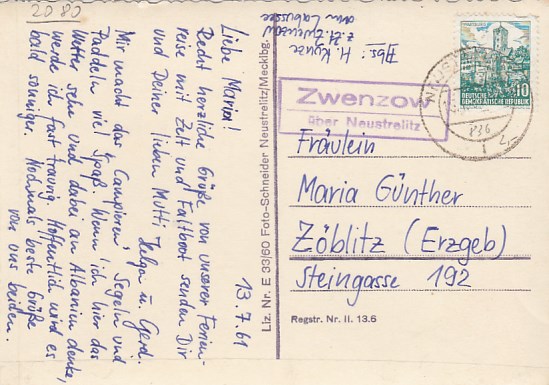 2080
Liebe Maria!
Recht herzliche Grüße von unserer Ferien-
reise mit Zelt und Faltboot senden Dir
und Deiner lieben Mutti Helga u. Gerd.
Mir macht das Campieren, Segeln und
Paddeln viel Spaß. Wenn ich hier das
Wetter seh und dabei an Albanien denke,
werde ich fast traurig. Hoffentlich wird es
bald sonniger. Nochmals beste Grüße
von uns beiden.
13.7.61
Liz. Nr. E 33/60 Foto-Schneider Neustrelitz/Mecklbg.
Abs: H. Kunze
z. Zt. Zwenzow
am Labussee
DEUTSCHE
DEMOKRATISCHE REPUBLIK
10
836
Zwenzow
über Neustrelitz
Fräulein
Maria Günther
Zöblitz (Erzgeb)
Steingasse 192
Regstr. Nr. II. 13.6